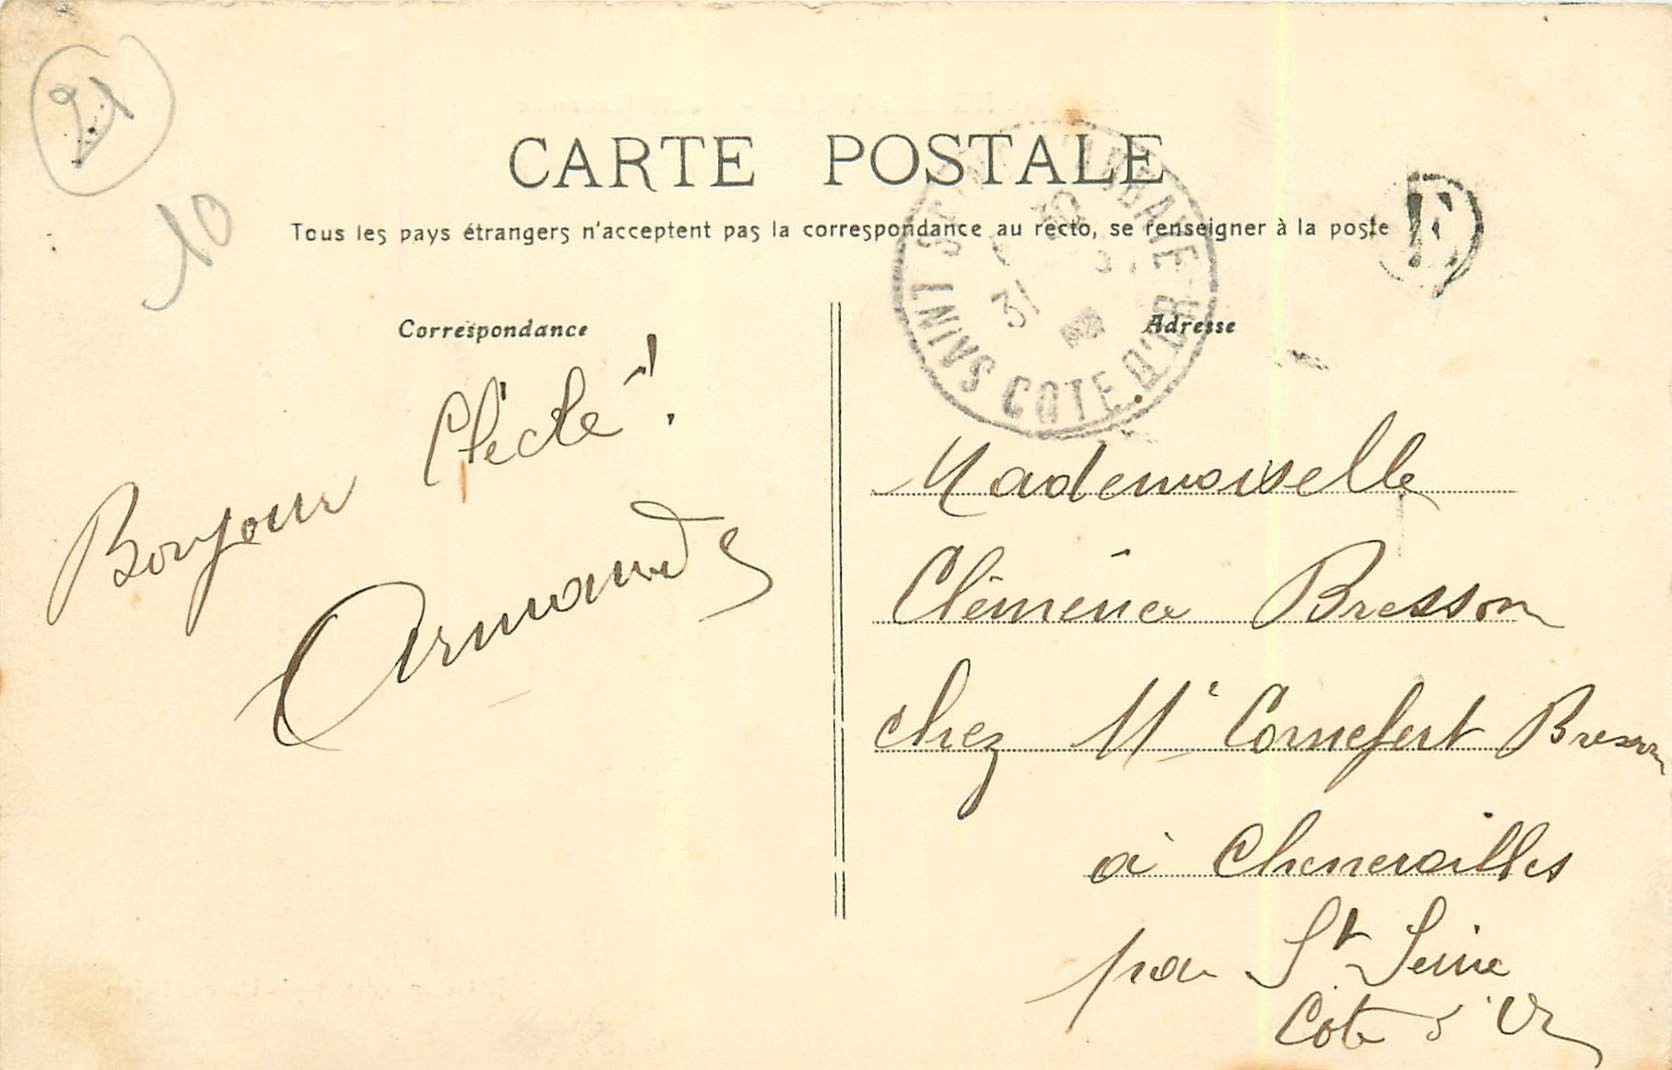 21
10
CARTE POSTALE
Tous les pays étrangers n'acceptent pas la correspondance au recto, se renseigner à la poste
E
SAINT SEINE L'ABBAYE
31
COTE D'OR
Correspondance
Adresse
Bonjour Clécle !
Armand
Mademoiselle
Clémence Bresson
chez Mr Cornefert Bresson
à Cheneroilles
par St Seine
Cote d'Or